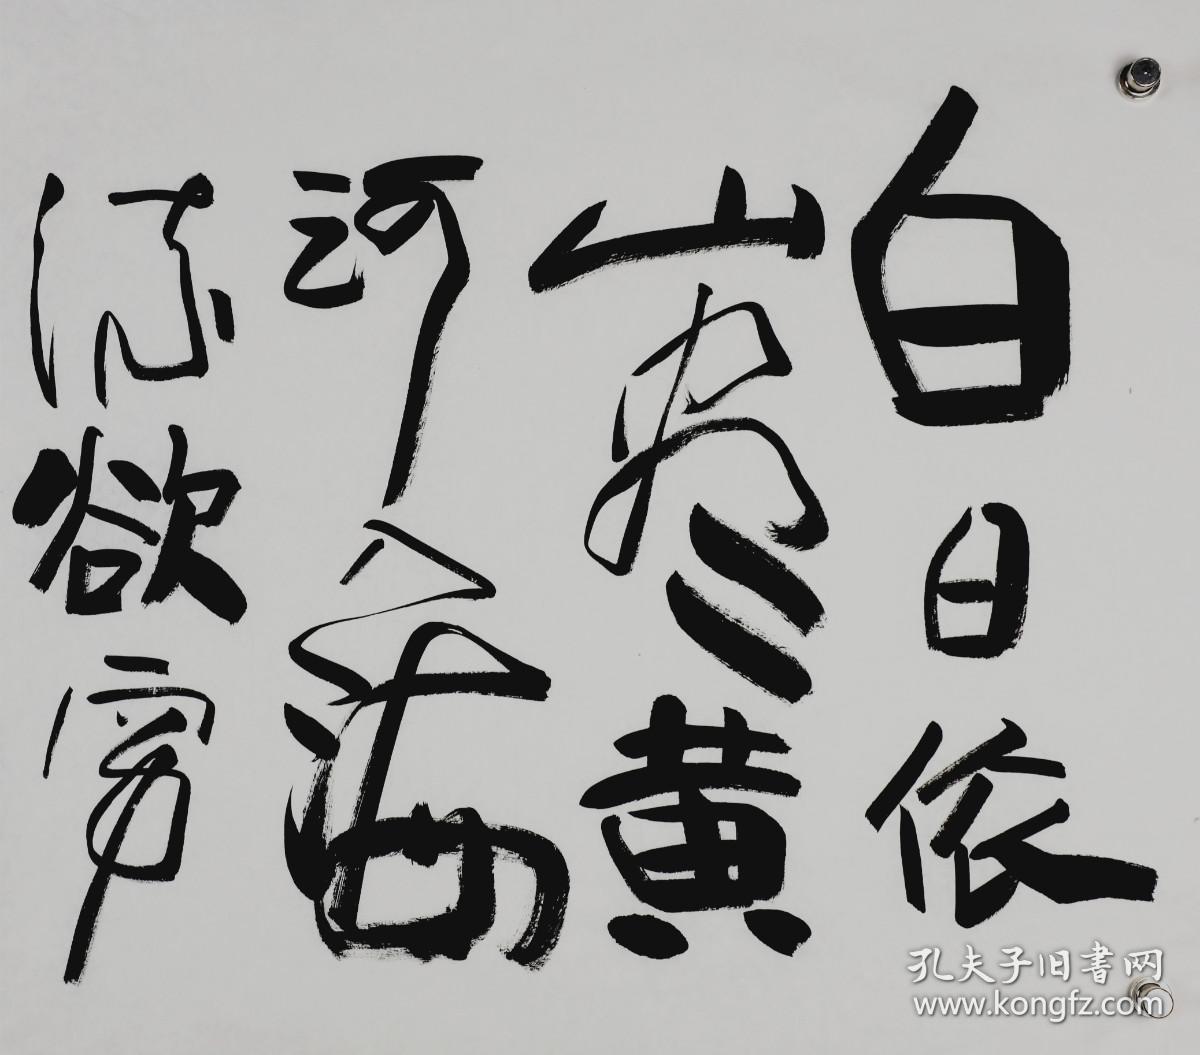 白日依
山尽黄
河入海
流欲穷
孔夫子旧書网
www.kongfz.com